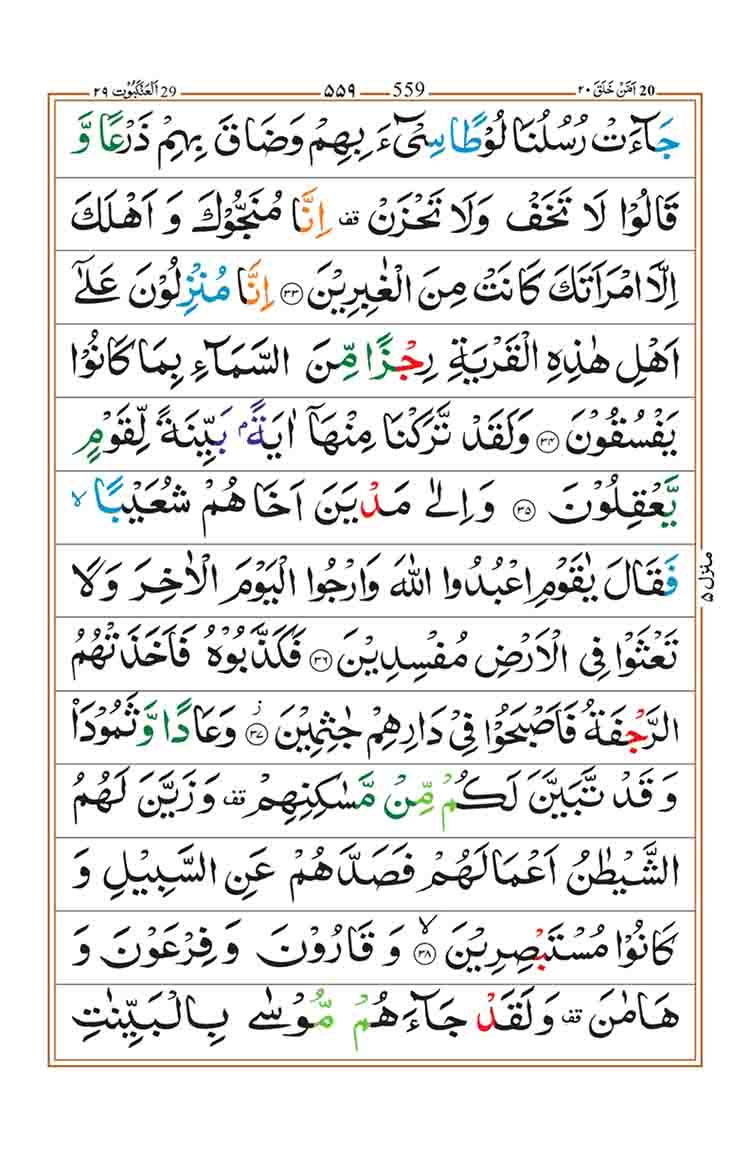 20 اَمَّنْ خَلَقَ ۲۰ 559 ۵۵۹ 29 اَلْعَنْكَبُوْت ۲۹
جَآءَتْ رُسُلُنَا لُوْطًا سِیْٓءَ بِهِمْ وَضَاقَ بِهِمْ ذَرْعًا وَّ
قَالُوْا لَا تَخَفْ وَلَا تَحْزَنْ ۫ اِنَّا مُنَجُّوْكَ وَ اَهْلَكَ
اِلَّا امْرَاَتَكَ كَانَتْ مِنَ الْغٰبِرِیْنَ ۝۳۳ اِنَّا مُنْزِلُوْنَ عَلٰۤی
اَهْلِ هٰذِهِ الْقَرْیَةِ رِجْزًا مِّنَ السَّمَآءِ بِمَا كَانُوْا
یَفْسُقُوْنَ ۝۳۴ وَلَقَدْ تَّرَكْنَا مِنْهَاۤ اٰیَةًۢ بَیِّنَةً لِّقَوْمٍ
یَّعْقِلُوْنَ ۝۳۵ وَاِلٰی مَدْیَنَ اَخَاهُمْ شُعَیْبًا ۙ
فَقَالَ یٰقَوْمِ اعْبُدُوا اللّٰهَ وَارْجُوا الْیَوْمَ الْاٰخِرَ وَلَا
تَعْثَوْا فِی الْاَرْضِ مُفْسِدِیْنَ ۝۳۶ فَكَذَّبُوْهُ فَاَخَذَتْهُمُ
الرَّجْفَةُ فَاَصْبَحُوْا فِیْ دَارِهِمْ جٰثِمِیْنَ ۝۳۷ؗ وَعَادًا وَّثَمُوْدَاۡ
وَ قَدْ تَّبَیَّنَ لَكُمْ مِّنْ مَّسٰكِنِهِمْ ۫ وَزَیَّنَ لَهُمُ
الشَّیْطٰنُ اَعْمَالَهُمْ فَصَدَّهُمْ عَنِ السَّبِیْلِ وَ
كَانُوْا مُسْتَبْصِرِیْنَ ۝۳۸ۙ وَ قَارُوْنَ وَ فِرْعَوْنَ وَ
هَامٰنَ ۫ وَلَقَدْ جَآءَهُمْ مُّوْسٰی بِالْبَیِّنٰتِ
منزل ۵